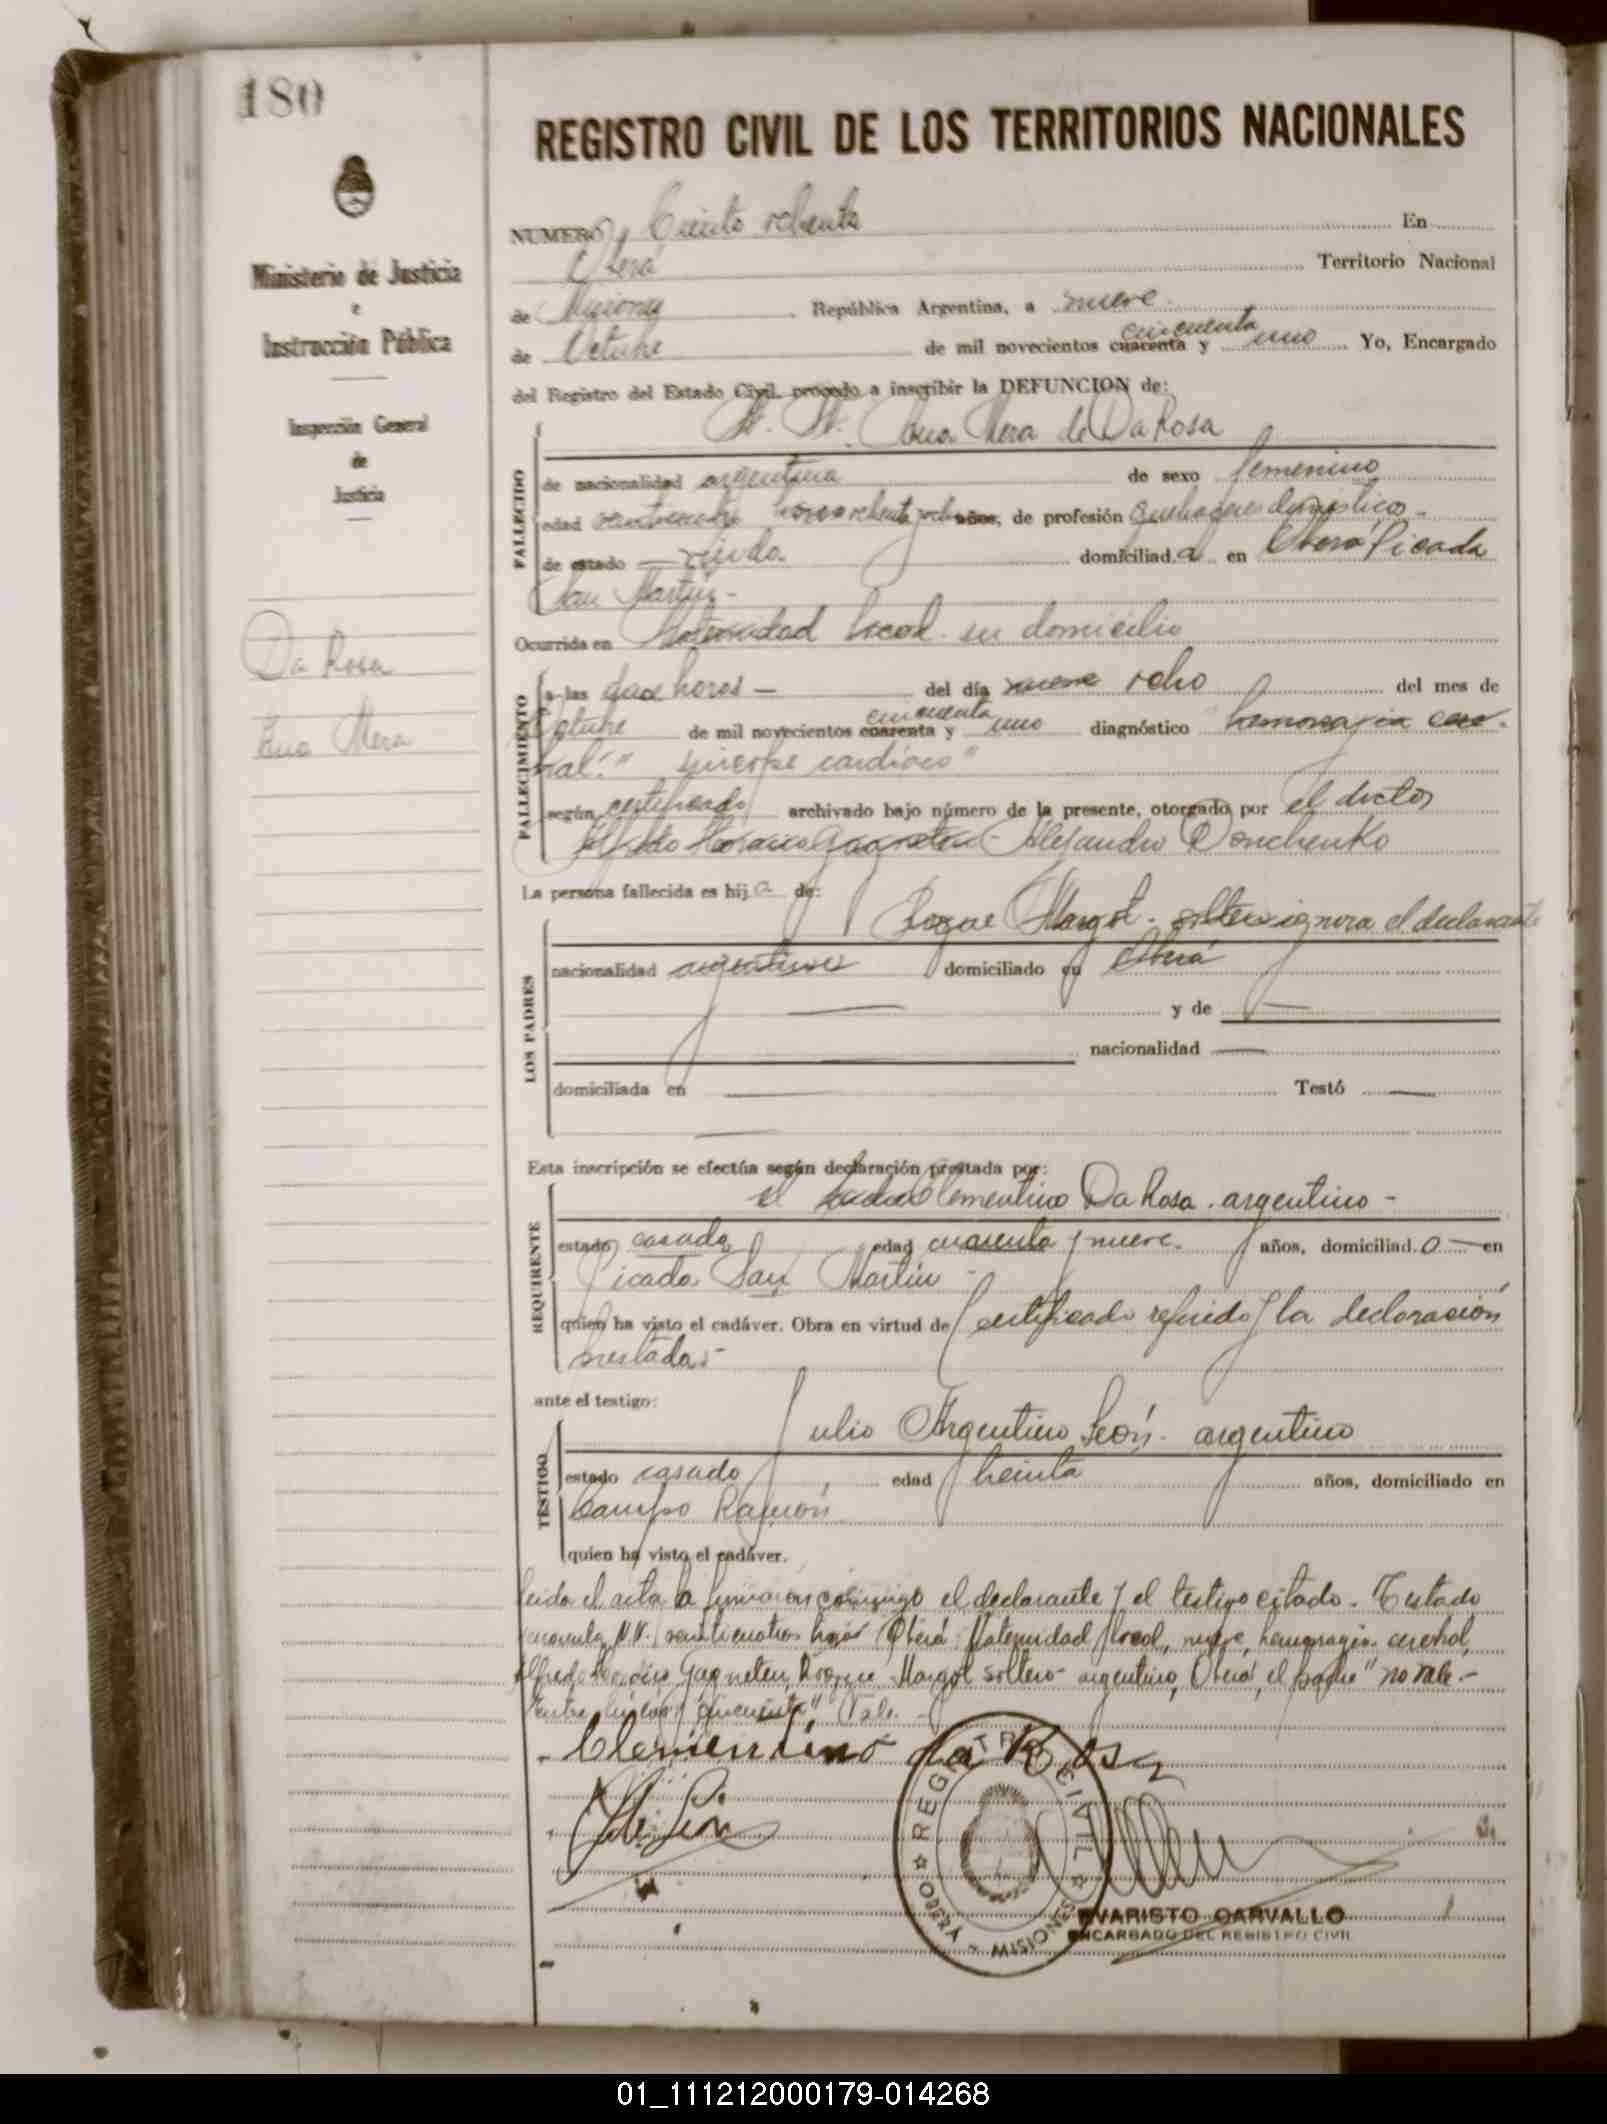 180
REGISTRO CIVIL DE LOS TERRITORIOS NACIONALES
Ministerio de Justicia
e
Instrucción Pública
Inspección General
de
Justicia
Da Rosa
Ana Mera
NUMERO Ciento ochenta En
Oberá Territorio Nacional
de Misiones República Argentina, a nueve
de Octubre de mil novecientos cuarenta cincuenta y uno Yo, Encargado
del Registro del Estado Civil, procedo a inscribir la DEFUNCION de:
N. N. Ana Mera de Da Rosa
FALLECIDO
de nacionalidad argentina de sexo femenino
edad ochenta y ocho años, de profesión quehaceres domésticos -
de estado viuda domiciliad a en Oberá Picada
San Martín -
Ocurrida en Maternidad local su domicilio
FALLECIMIENTO
a las doce horas - del día nueve ocho del mes de
Octubre de mil novecientos cuarenta cincuenta y uno diagnóstico hemorragia cere-
bral." sincope cardíaco"
según certificado archivado bajo número de la presente, otorgado por el doctor
Alfredo Horacio Alejandro Donchenko
La persona fallecida es hij a de:
LOS PADRES
Roque Margot - soltero ignora el declarante
nacionalidad argentino domiciliado en Oberá
— y de —
nacionalidad —
domiciliada en — Testó —
Esta inscripción se efectúa según declaración prestada por:
REQUIRENTE
el padre Clementino Da Rosa . argentino -
estado casado edad cuarenta y nueve - años, domiciliad o en
Picada San Martín -
quien ha visto el cadáver. Obra en virtud de certificado referido y la declaración
prestada -
ante el testigo:
TESTIGO
Julio Argentino León - argentino
estado casado edad treinta años, domiciliado en
Campo Ramón
quien ha visto el cadáver.
Leida el acta la firmaron conmigo el declarante y el testigo citado - Testado
cuarenta, N.N. veinticuatro horas Oberá Maternidad local, nueve, hemorragia cerebral,
Alfredo Horacio Roque Margot soltero - argentino, Oberá, el padre" no vale -
Entre líneas "cincuenta" Vale -
Clementino da Rosa
REGISTRO CIVIL
OBERÁ - MISIONES
EVARISTO CARVALLO
ENCARGADO DEL REGISTRO CIVIL
01_111212000179-014268